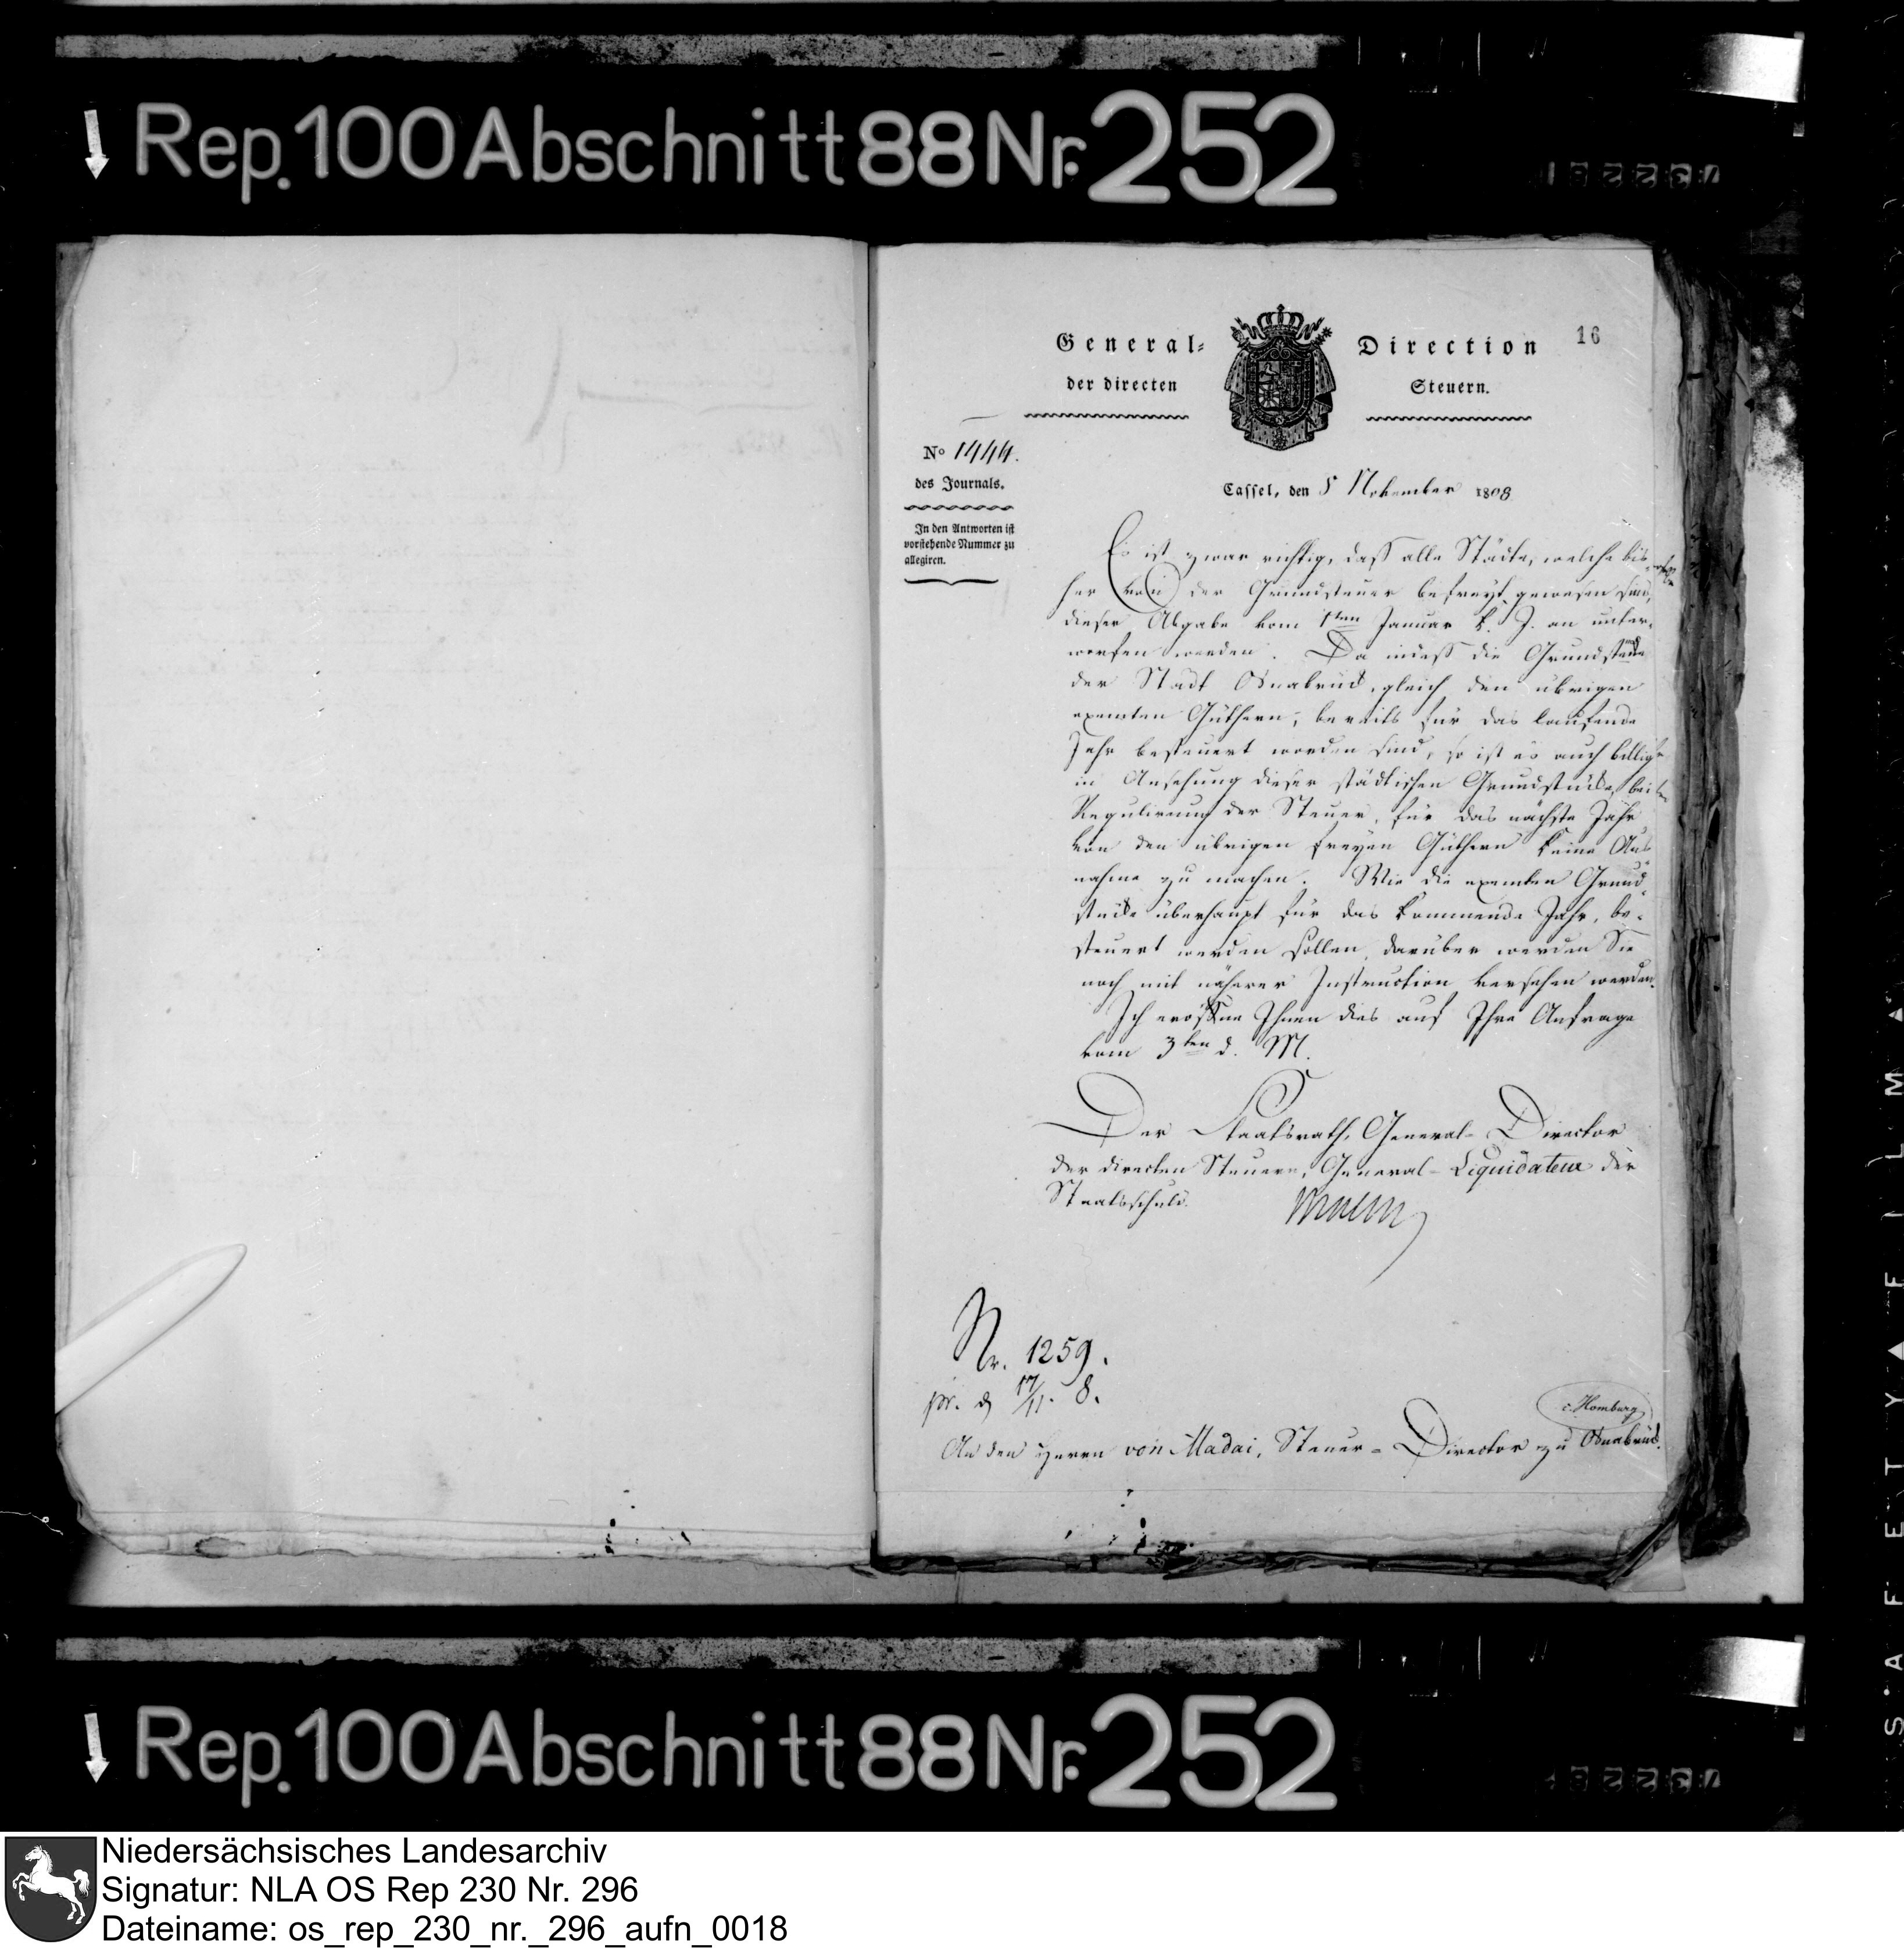 Rep. 100 Abschnitt 88 Nr. 252
16
General- Direction
der directen Steuern.
No 1444.
des Journals.
In den Antworten ist
vorstehende Nummer zu
allegiren.
Cassel, den 5 November 1808
Es ist zwar richtig, daß alle Städte, welche bis-
her von der Grundsteuer befreyt gewesen sind,
dieser Abgabe vom 1ten Januar k. J. an unter-
worfen werden. Da indeß die Grundstücke
der Stadt Osnabrück, gleich den übrigen
exemten Güthern, bereits für das laufende
Jahr besteuert worden sind, so ist es auch billig
in Ansehung dieser städtischen Grundstücke, bei
Regulirung der Steuer, für das nächste Jahr
von den übrigen freyen Güthern keine Aus-
nahme zu machen. Wie die exemten Grund-
stücke überhaupt für das kommende Jahr, be-
steuert werden sollen, darüber werden Sie
noch mit näherer Instruction versehen werden.
Ich eröffne Ihnen dies auf Ihre Anfrage
vom 3ten d. M.
Der Staatsrath, General-Director
der directen Steuern, General-Liquidateur der
Staatsschuld.
Nr. 1259.
pr. d 17/11. 8.
v. Homburg
An den Herrn von Madai, Steuer-Director zu Osnabrück.
SAFETY FILM
Rep. 100 Abschnitt 88 Nr. 252
Niedersächsisches Landesarchiv
Signatur: NLA OS Rep 230 Nr. 296
Dateiname: os_rep_230_nr._296_aufn_0018